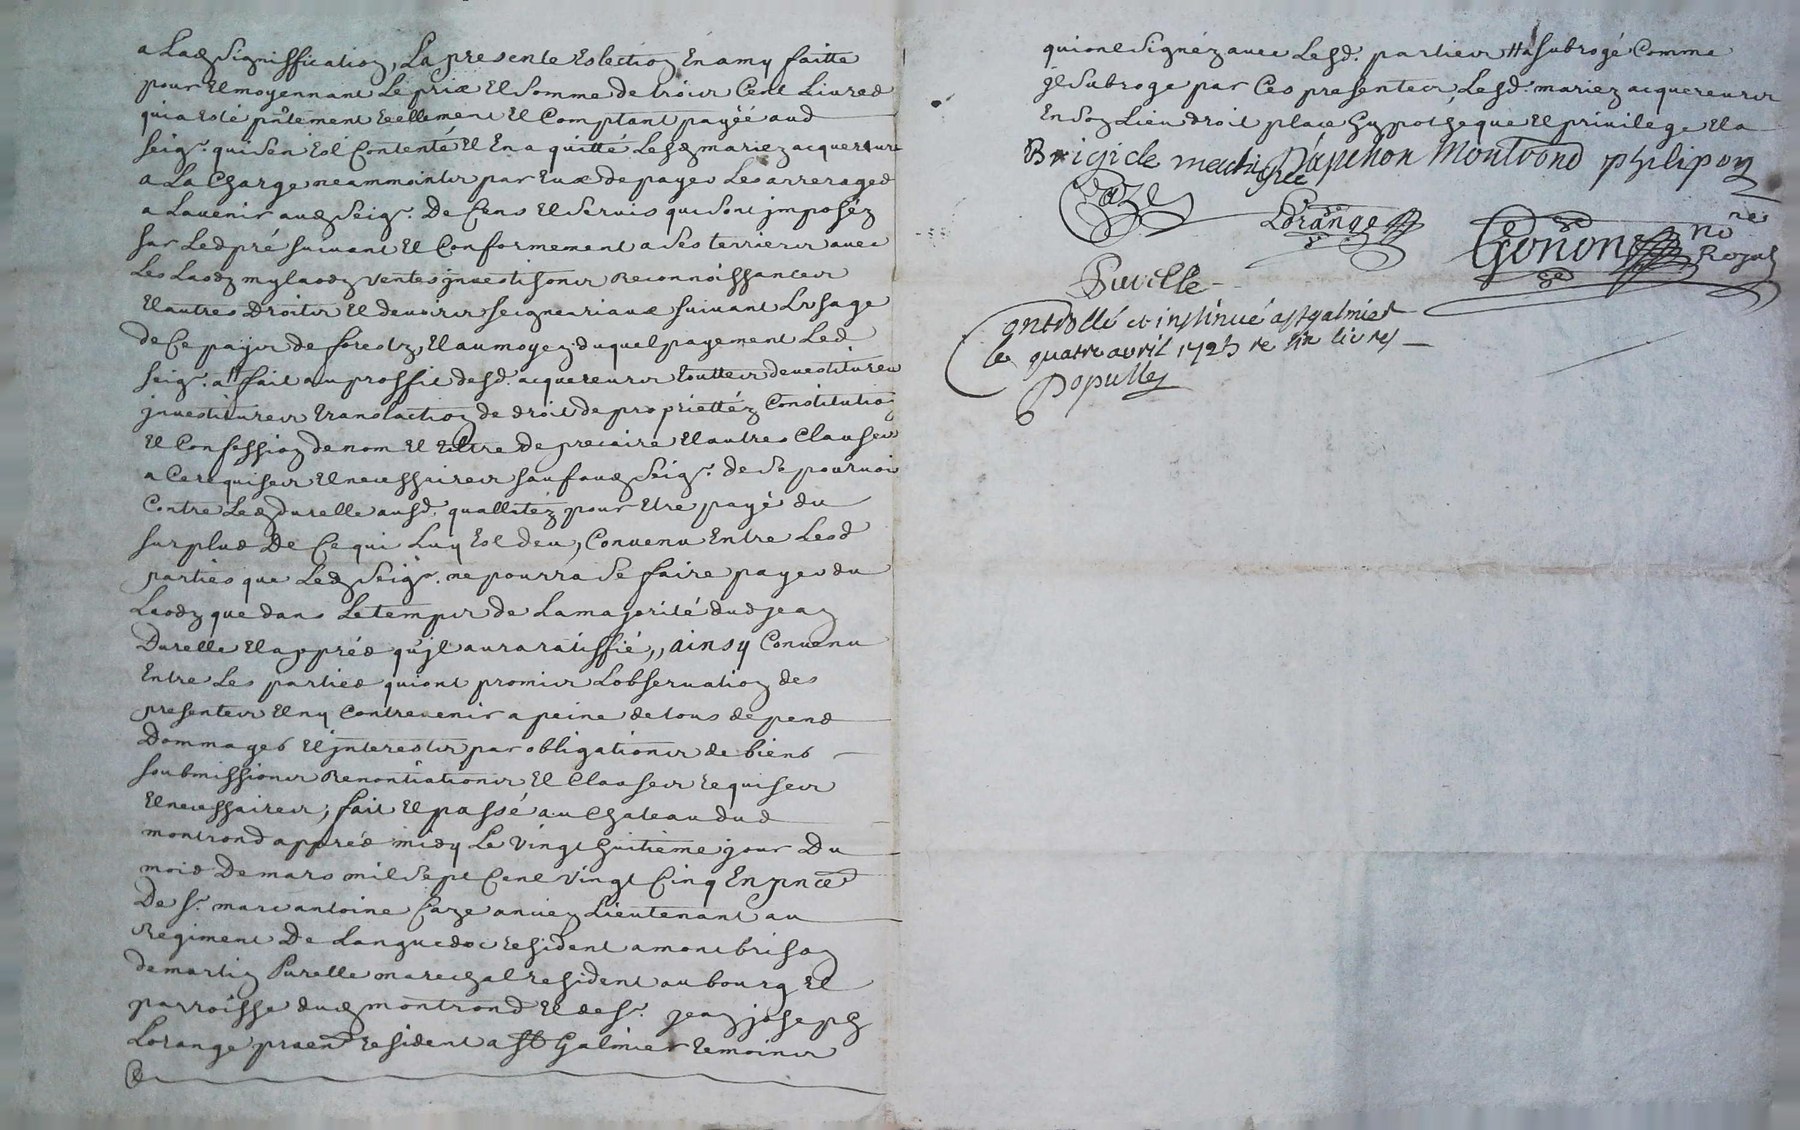 a Lad signiffication, La presente Eslection En amy faitte
pour Et moyennant Le prix Et Somme de trois Cent Livres
qui a Esté pñtement Reellement Et Comptant payéé aud
seigr. qui s'en Est Contenté Et En a quitté Lesd mariez acquereurs
a La Charge neammoints par Eux de payer Les arrerages
a Lavenir aud Seigr. De Cens Et Servis qui sont jmposéz
sur Led pré suivant Et Conformement a Ses terriers avec
Les Laods mylaods ventes jnvestisons Reconnoissances
Et autres Droits Et devoirs seigneuriaux suivant Lusage
de Ce payis de forestz, Et au moyen duquel payement Led
seigr. a fait au proffit desd. acquereurs touttes devestitures
jnvestitures translaction de droit de proprietté Constitution
Et Confession de nom Et tiltre De precaire Et autres Clauses
a Ce requises Et necessaires sauf aud Seigr. de Se pourvoir
Contre Led durelle ausd. quallitéz pour Etre payé du
surplus De Ce qui Luy Est deu, Convenu Entre Lesd
parties que Led Seigr. ne pourra Se faire payer du
Laodz que dans Le temps de La majorité dud jean
Durelle Et apprés qu'jl aura ratiffié,, ainsy Convenu
Entre Les parties qui ont promis Lobservation des
presentes Et ny Contrevenir a peine de tous depens
Dommages Et jnterests par obligations de biens
soubmissions Renontiations Et Clauses requises
Et necessaires; fait Et passé au Chateau dud
montrond apprés midy Le Vingt huitieme jour Du
mois De mars mil Sept Cent Vingt Cinq En pñce
De sr. marc antoine Caze ancien Lieutenant au
Regiment De Languedoc resident a montbrison
de martin Purelle marechal resident au bourg Et
parroisse dud montrond Et de sr. jean joseph
Lorange praen resident a st Galmier temoins
qui ont Signéz avec Lesd. parties Ha Subrogé Comme
jl Subroge par Ces presentes, Lesd. mariez acquereurs
En Son Lieu droit place hypotheque Et privilege Et a
Brigide Dapchon Montrond philipon
Caze
Lorange
Gonon
no
re
Royal
Purelle
Controllé et insinué a st galmier
le quatre avril 1725 re six livres
Populle